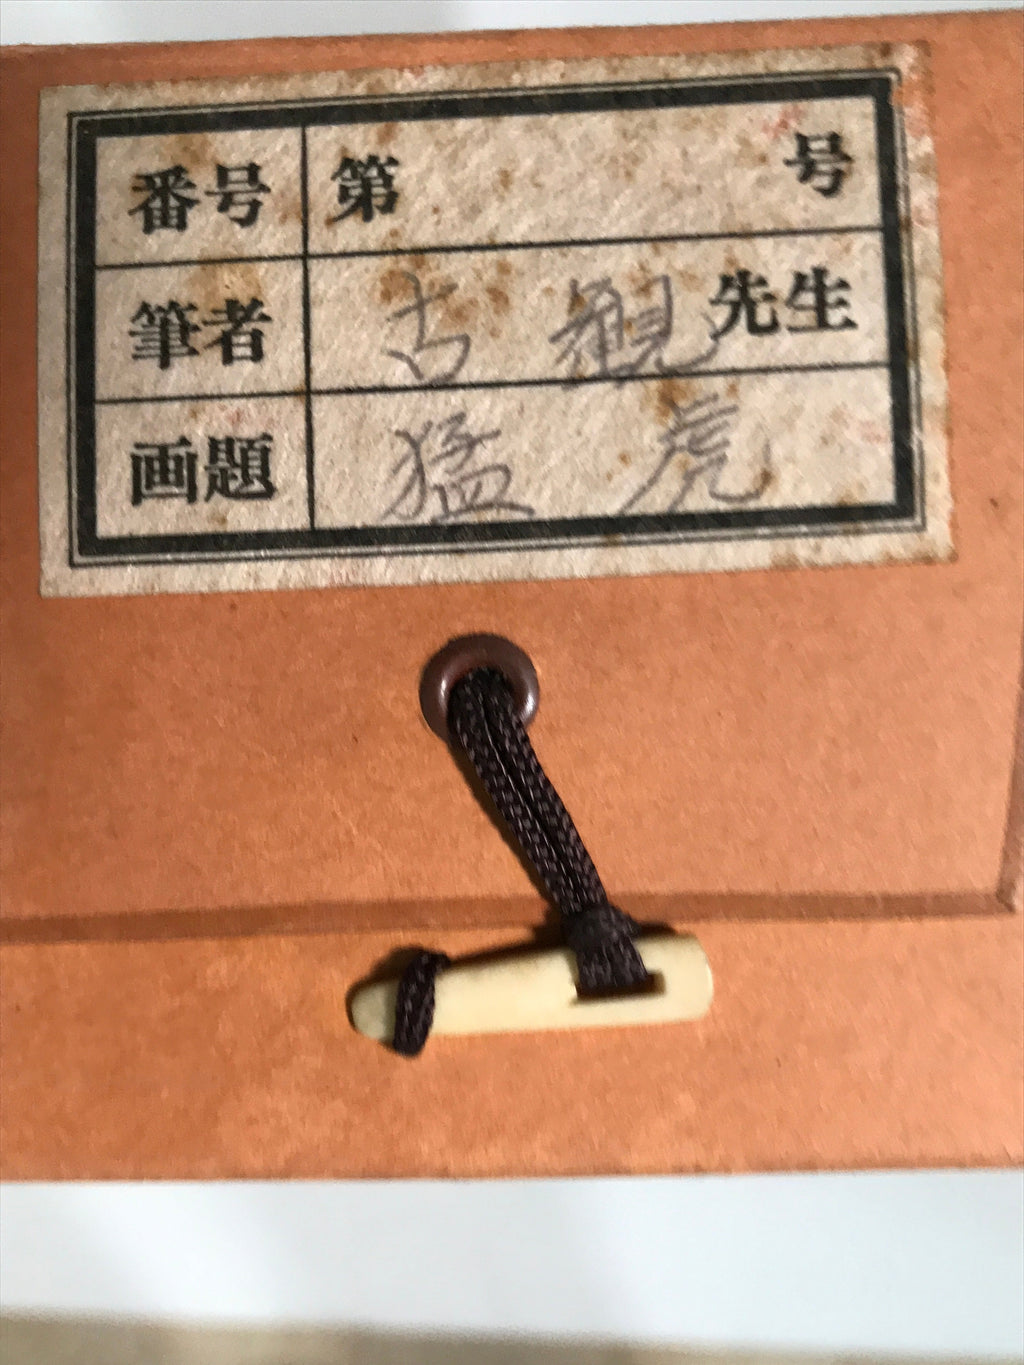 番号 第 号
筆者 古観 先生
画題 猛虎